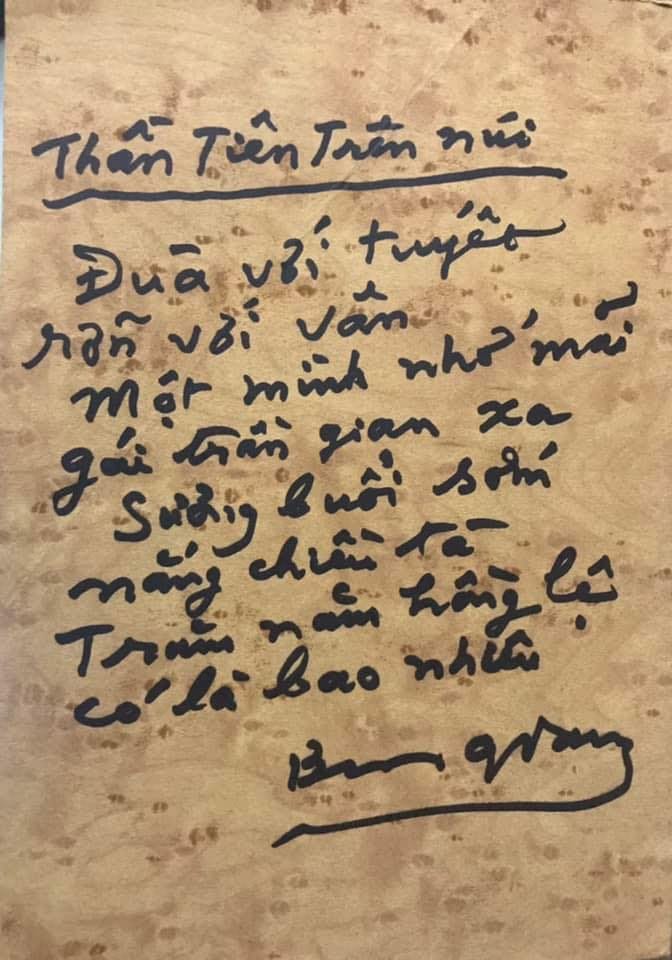 Thần Tiên Trên núi
Đuà với tuyết
rỡn với vân
Một mình nhớ mãi
gái trần gian xa
Sương buổi sớm
nắng chiều tà
Trăm năm hồng lệ
có là bao nhiêu